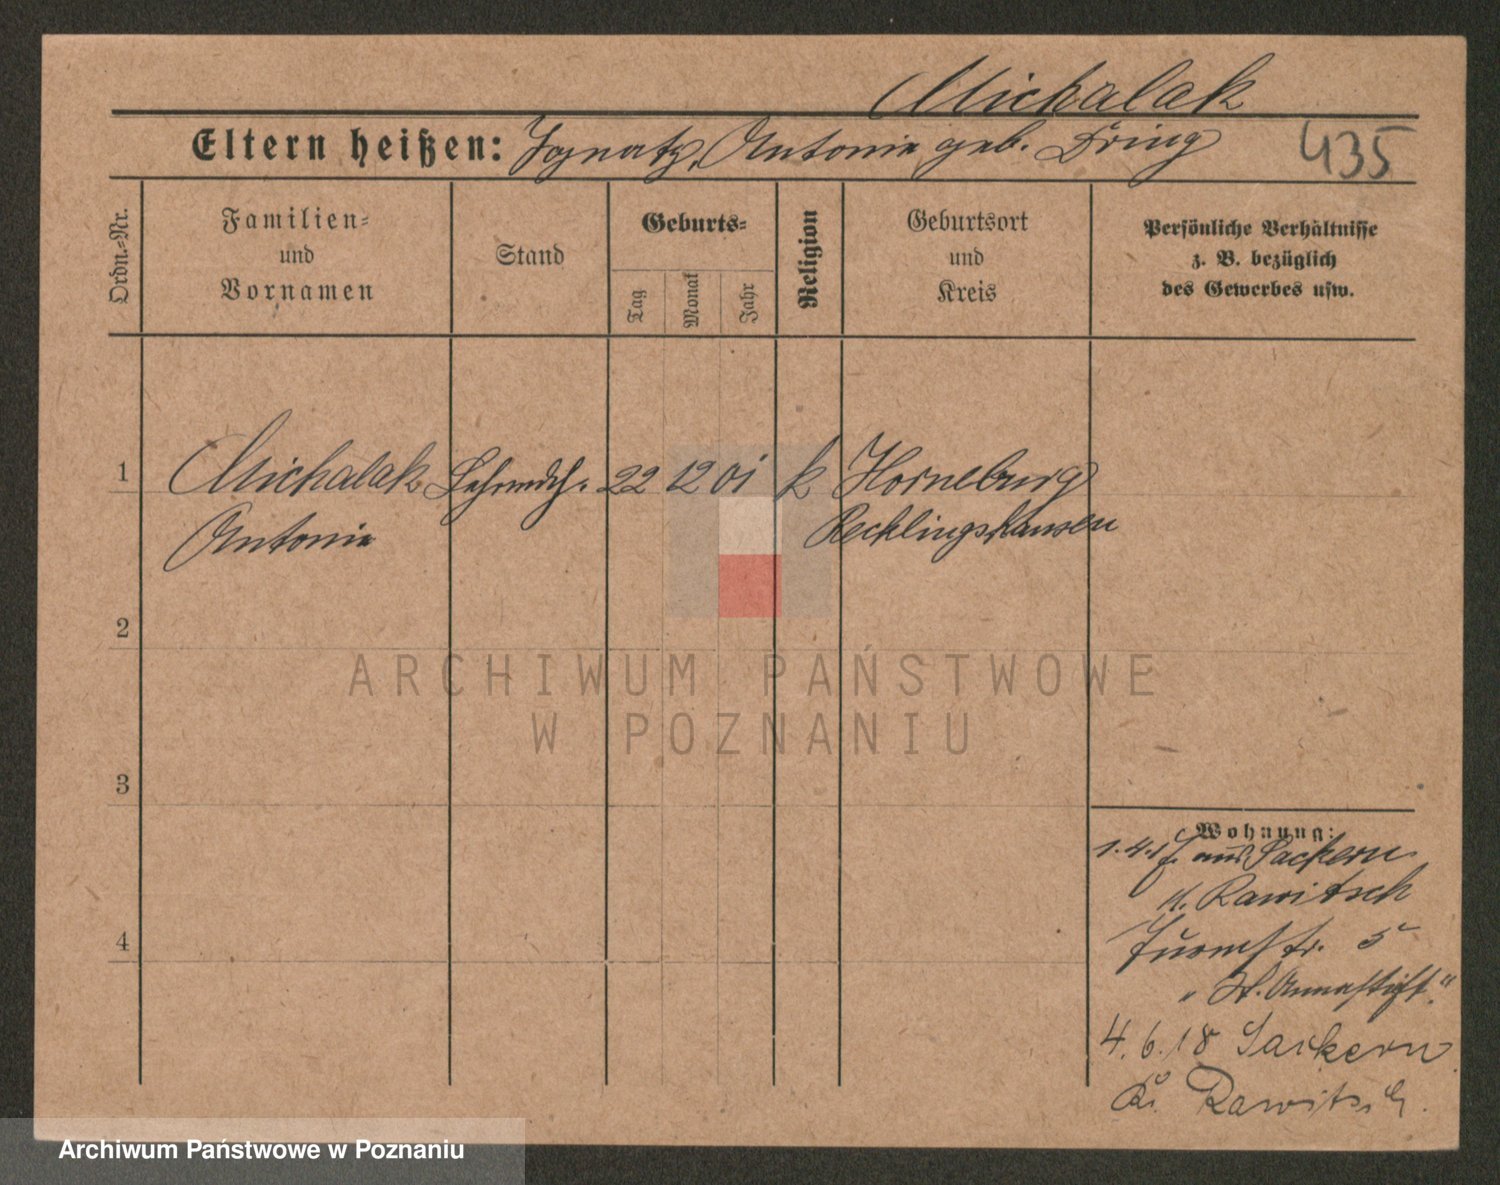 Michalak
Eltern heißen: Ignatz, Antonie geb. Düring
435
Ordn.=Nr.
Familien=
und
Vornamen
Stand
Geburts=
Tag
Monat
Jahr
Religion
Geburtsort
und
Kreis
Persönliche Verhältnisse
z. B. bezüglich
des Gewerbes usw.
1 Michalak 22 12 01 k Horneburg
Antonie Recklingshausen
2
ARCHIWUM PAŃSTWOWE
W POZNANIU
3
Wohnung:
aus Sackern
Rawitsch
str. 5
„St. Annastift."
4
4.6.18 Sackern
Kr. Rawitsch.
Archiwum Państwowe w Poznaniu